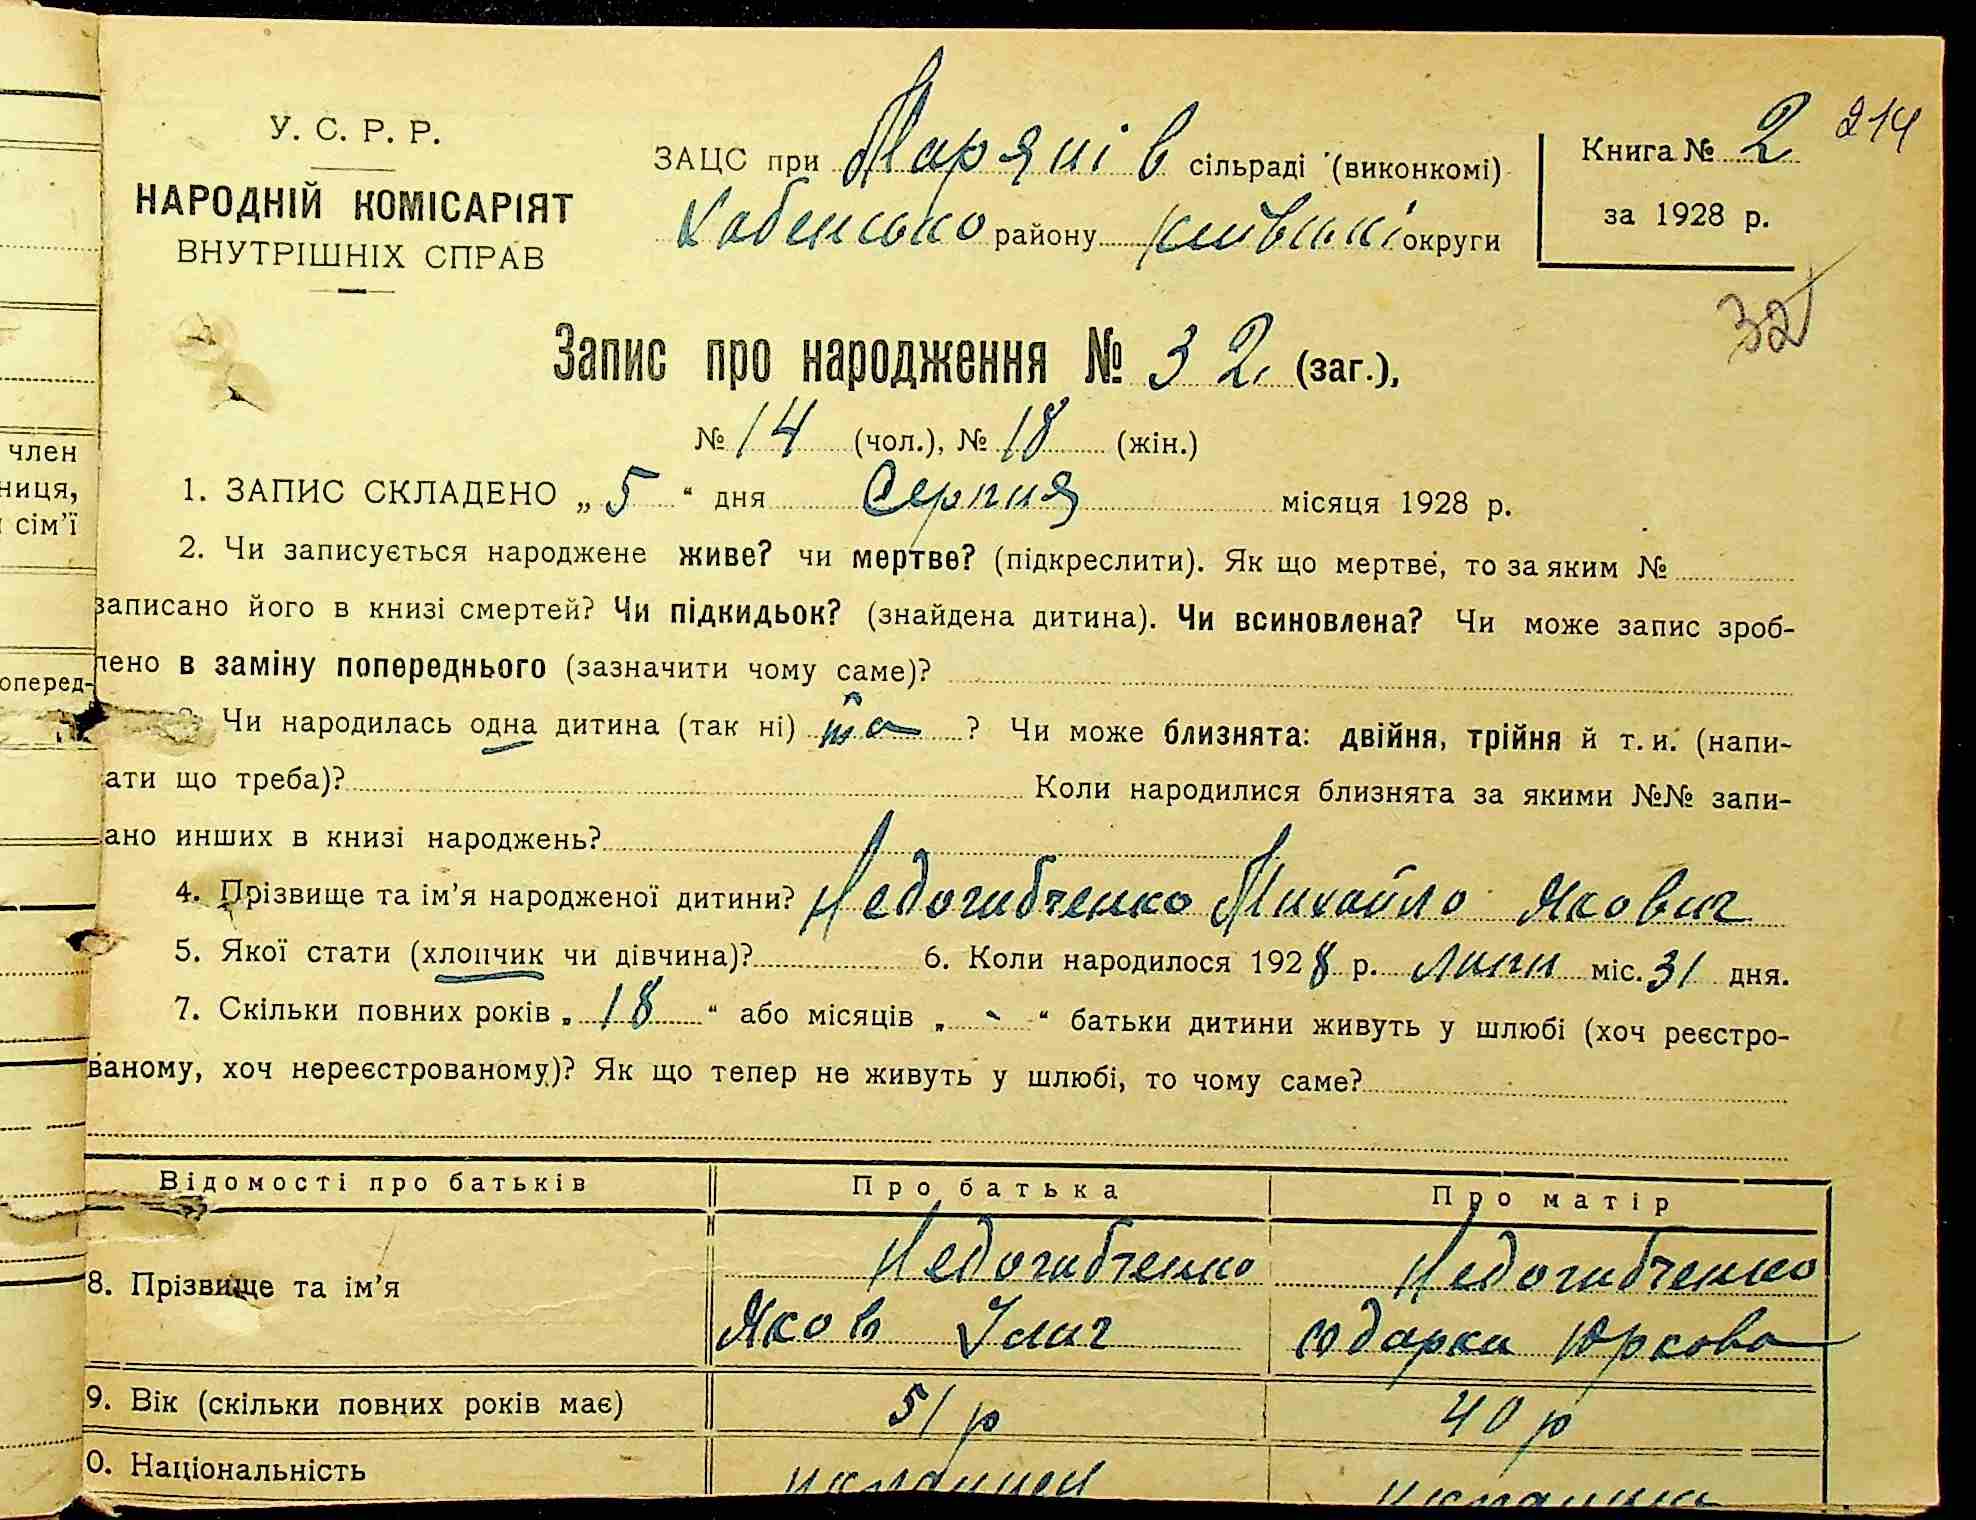 член
ниця,
сім'ї
оперед-
У. С. Р. Р.
НАРОДНІЙ КОМІСАРІЯТ
ВНУТРІШНІХ СПРАВ
ЗАЦС при Марянів сільраді (виконкомі)
Хабенсько району київські округи
Книга № 2
за 1928 р.
214
32
Запис про народження № 32. (заг.),
№ 14 (чол.), № 18 (жін.)
1. ЗАПИС СКЛАДЕНО „ 5 “ дня Серпня місяця 1928 р.
2. Чи записується народжене живе? чи мертве? (підкреслити). Як що мертве, то за яким №
записано його в книзі смертей? Чи підкидьок? (знайдена дитина). Чи всиновлена? Чи може запис зроб-
лено в заміну попереднього (зазначити чому саме)?
Чи народилась одна дитина (так ні) ? Чи може близнята: двійня, трійня й т. и. (напи-
ати що треба)? Коли народилися близнята за якими №№ запи-
ано инших в книзі народжень?
4. Прізвище та ім'я народженої дитини? Недогибченко Михайло Якович
5. Якої стати (хлопчик чи дівчина)? 6. Коли народилося 1928 р. липн міс. 31 дня.
7. Скільки повних років „ 18 “ або місяців „ - “ батьки дитини живуть у шлюбі (хоч реєстро-
ваному, хоч нереєстрованому)? Як що тепер не живуть у шлюбі, то чому саме?
Відомості про батьків Про батька Про матір
8. Прізвище та ім'я Недогибченко Недогибченко
Яков Ілич одарка Юркова
9. Вік (скільки повних років має) 51 р 40 р
0. Національність